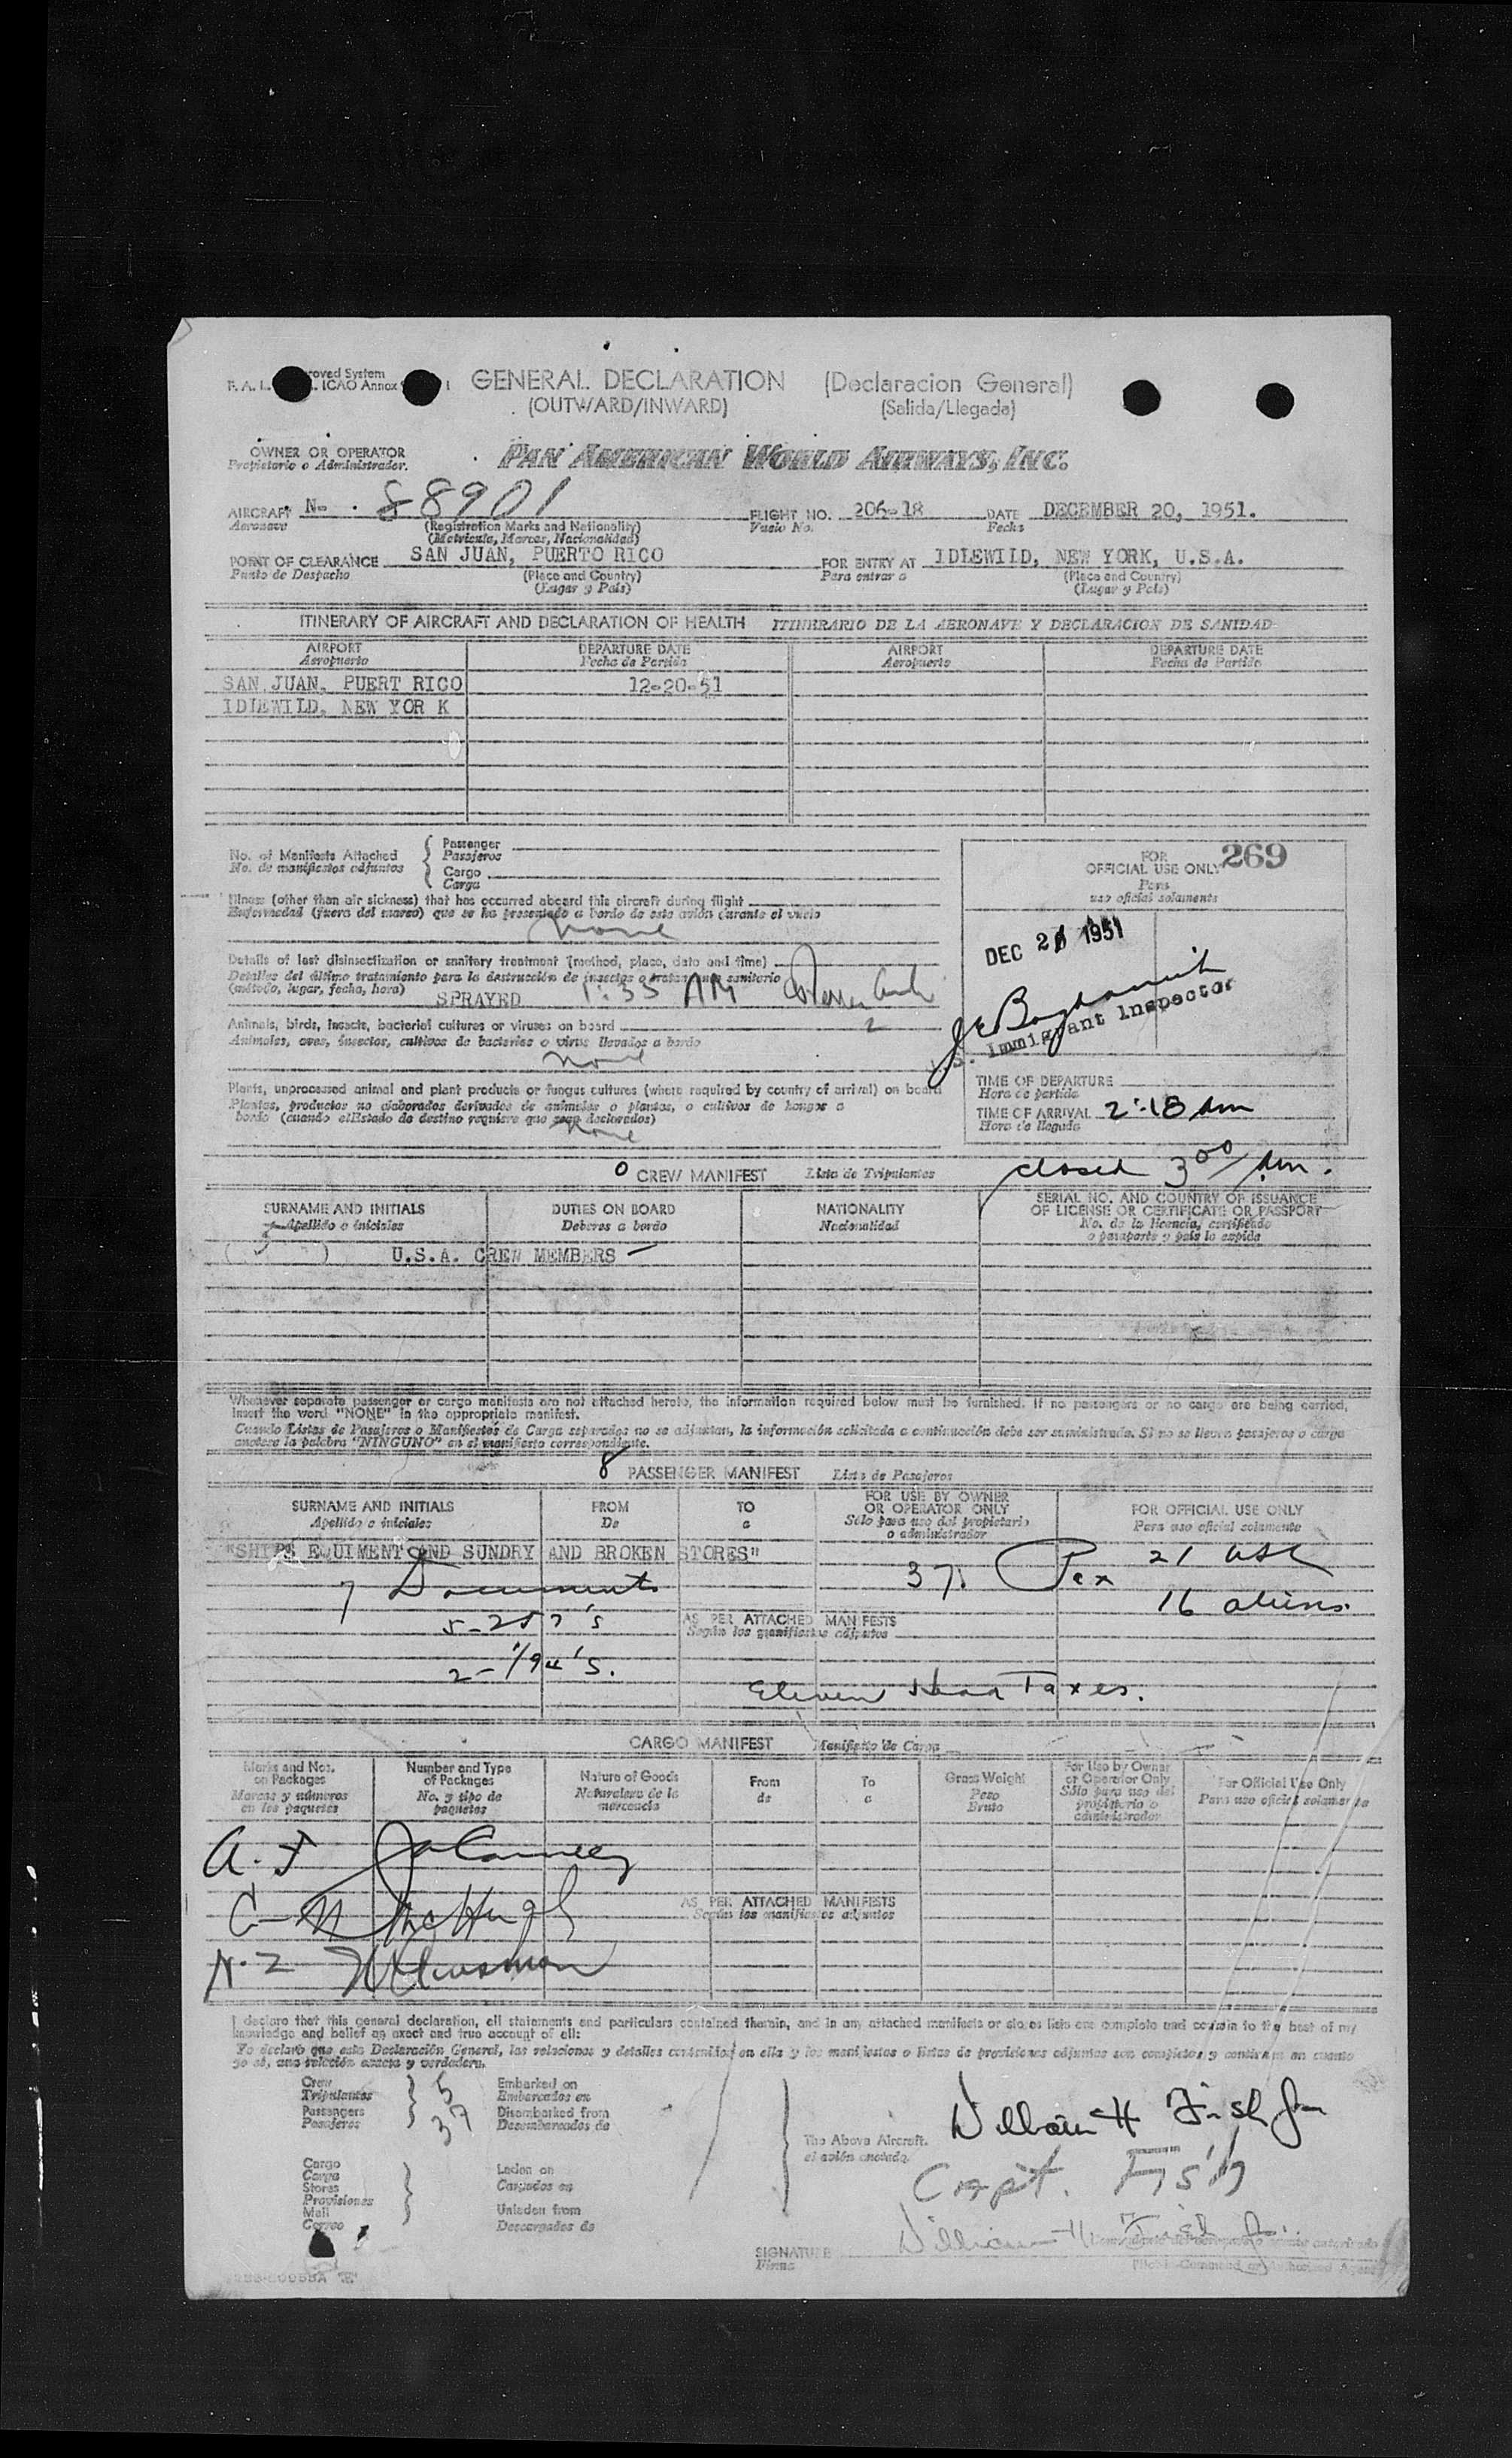 GENERAL DECLARATION (Declaracion General)
(OUTWARD/INWARD) (Salida/Llegada)
OWNER OR OPERATOR PAN AMERICAN WORLD AIRWAYS, INC.
Propietario o Administrador.
AIRCRAFT N- 88901 FLIGHT NO. 206-18 DATE DECEMBER 20, 1951.
Aeronave (Registration Marks and Nationality) Vuelo No. Fecha
(Matricula, Marcas, Nacionalidad)
POINT OF CLEARANCE SAN JUAN, PUERTO RICO FOR ENTRY AT IDLEWILD, NEW YORK, U.S.A.
Punto de Despacho (Place and Country) Para entrar a (Place and Country)
(Lugar y País) (Lugar y País)
ITINERARY OF AIRCRAFT AND DECLARATION OF HEALTH ITINERARIO DE LA AERONAVE Y DECLARACION DE SANIDAD
AIRPORT DEPARTURE DATE AIRPORT DEPARTURE DATE
Aeropuerto Fecha de Partida Aeropuerto Fecha de Partida
SAN JUAN, PUERT RICO 12-20-51
IDLEWILD, NEW YOR K
No. of Manifests Attached Passenger
No. de manifiestos adjuntos Pasajeros
Cargo
Carga
FOR 269
OFFICIAL USE ONLY
Para
uso oficial solamente
Illness (other than air sickness) that has occurred aboard this aircraft during flight
Enfermedad (fuera del mareo) que se ha presentado a bordo de este avión durante el vuelo
None
DEC 1951
Details of last disinsectization or sanitary treatment (method, place, date and time)
Detalles del último tratamiento para la destrucción de insectos o tratamiento sanitario
(método, lugar, fecha, hora) SPRAYED 1:35 AM
Immigrant Inspector
Animals, birds, insects, bacterial cultures or viruses on board
Animales, aves, insectos, cultivos de bacterias o virus llevados a bordo
None
Plants, unprocessed animal and plant products or fungus cultures (where required by country of arrival) on board
Plantas, productos no elaborados derivados de animales o plantas, o cultivos de hongos a
bordo (cuando el Estado de destino requiere que sean declarados)
None
TIME OF DEPARTURE
Hora de partida
TIME OF ARRIVAL 2:18 am
Hora de llegada
closed 3 00/ Am.
CREW MANIFEST Lista de Tripulantes
SURNAME AND INITIALS DUTIES ON BOARD NATIONALITY SERIAL NO. AND COUNTRY OF ISSUANCE
OF LICENSE OR CERTIFICATE OR PASSPORT
Apellido e iniciales Deberes a bordo Nacionalidad No. de la licencia, certificado
o pasaporte y país lo expide
( 5 ) U.S.A. CREW MEMBERS
Whenever separate passenger or cargo manifests are not attached hereto, the information required below must be furnished. If no passengers or no cargo are being carried,
insert the word "NONE" in the appropriate manifest.
Cuando Listas de Pasajeros o Manifiestos de Carga separados no se adjuntan, la información solicitada a continuación debe ser suministrada. Si no se llevan pasajeros o carga
anotese la palabra "NINGUNO" en el manifiesto correspondiente.
8 PASSENGER MANIFEST Lista de Pasajeros
SURNAME AND INITIALS FROM TO FOR USE BY OWNER
OR OPERATOR ONLY FOR OFFICIAL USE ONLY
Apellido e iniciales De a Sólo para uso del propietario
o administrador Para uso oficial solamente
"SHIPS EQUIMENT AND SUNDRY AND BROKEN STORES"
37 Pax 21 USC
7 Documents 16 aliens.
5-257's AS PER ATTACHED MANIFESTS
Según los manifiestos adjuntos
2-1/94's.
Eleven Head Taxes.
CARGO MANIFEST Manifiesto de Carga
Marks and Nos.
on Packages Number and Type
of Packages Nature of Goods From To Gross Weight For Use by Owner
or Operator Only For Official Use Only
Marcas y números
en los paquetes No. y tipo de
paquetes Naturaleza de la
mercancia de a Peso
Bruto Sólo para uso del
propietario o
administrador Para uso oficial solamente
McHugh AS PER ATTACHED MANIFESTS
Según los manifiestos adjuntos
I declare that this general declaration, all statements and particulars contained therein, and in any attached manifests or stores lists are complete and contain to the best of my
knowledge and belief an exact and true account of all:
Yo declaro que esta Declaración General, las relaciones y detalles contenidos en ella y los manifiestos o listas de provisiones adjuntas son completos y contienen en cuanto
yo sé, una relación exacta y verdadera.
Crew 5 Embarked on
Tripulantes Embarcados en
Passengers 37 Disembarked from
Pasajeros Desembarcados de
The Above Aircraft.
el avión anotado.
William H Fish Jr
Capt. Fish
Cargo Laden on
Carga Cargados en
Stores
Provisiones
Mail Unladen from
Correo Descargados de
SIGNATURE William H. Fish Jr.
Firma